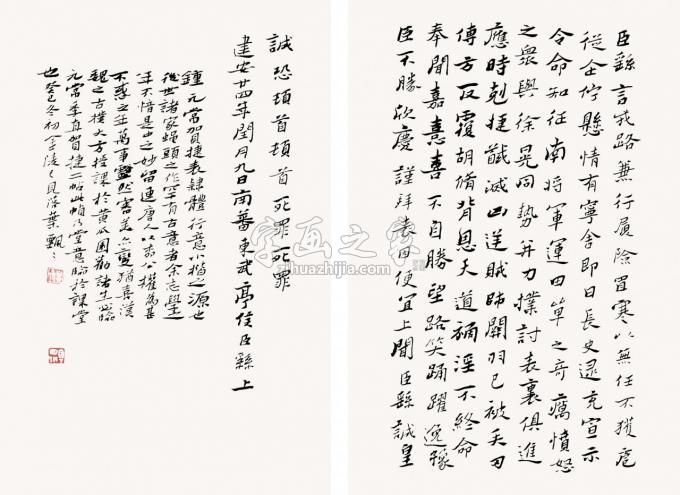 臣繇言戎路兼行履險冒寒以無任不獲扈
從企佇懸情有寧舍即日長史逯充宣示
令命知征南將軍運田單之奇厲憤怒
之衆與徐晃同勢并力撲討表裏俱進
應時剋捷馘滅凶逆賊帥關羽已被矢刃
傅方反覆胡脩背恩天道禍淫不終命
奉聞嘉憙喜不自勝望路笑踊躍逸豫
臣不勝欣慶謹拜表因便宜上聞臣繇誠皇
誠恐頓首頓首死罪死罪
建安廿四年閏月九日南蕃東武亭侯臣繇上
鍾元常賀捷表肆體行意小楷之源也
後世諸家蠅頭之作罕有古意者余志學之
年不惜是出之妙留連唐人以為公權為甚
不惑之年萬事豁然審美亦變猶喜漢
魏之古樸大方授課於黃瓜園勸諸生必臨
元常季直賀捷二帖此幀乃堂意臨於課堂
也癸巳冬初金陵已見落葉飄飄
字画之家
huazhijia.com